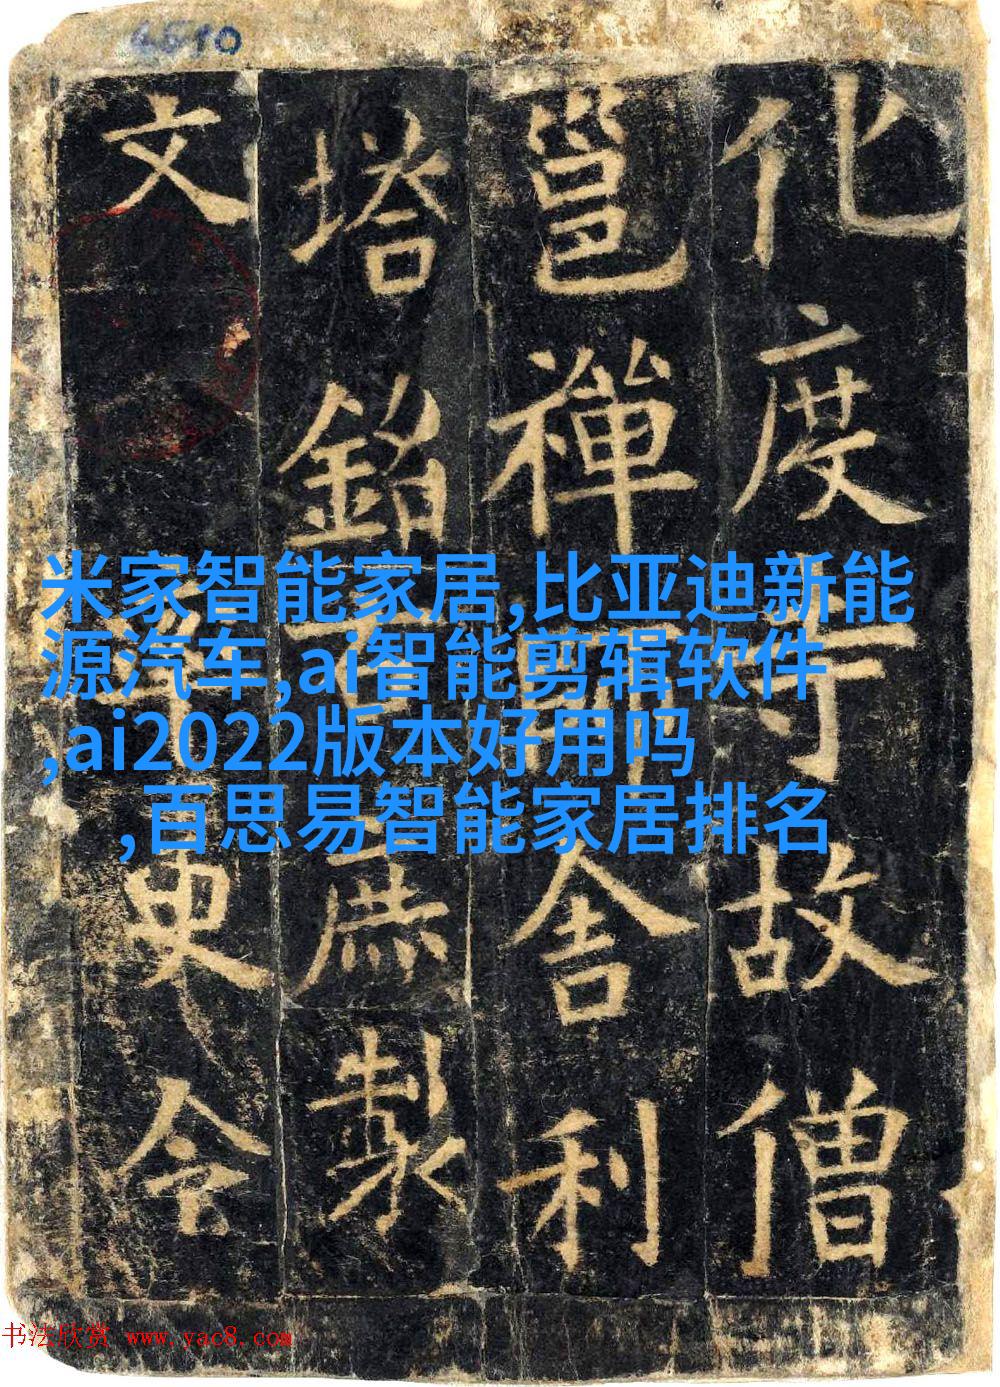 化度寺故僧
邕禪師舍利
塔銘庶製
文率更令
米家智能家居,比亚迪新能
源汽车,ai智能剪辑软件
,ai2022版本好用吗
,百思易智能家居排名
书法欣赏 www.yac8.com